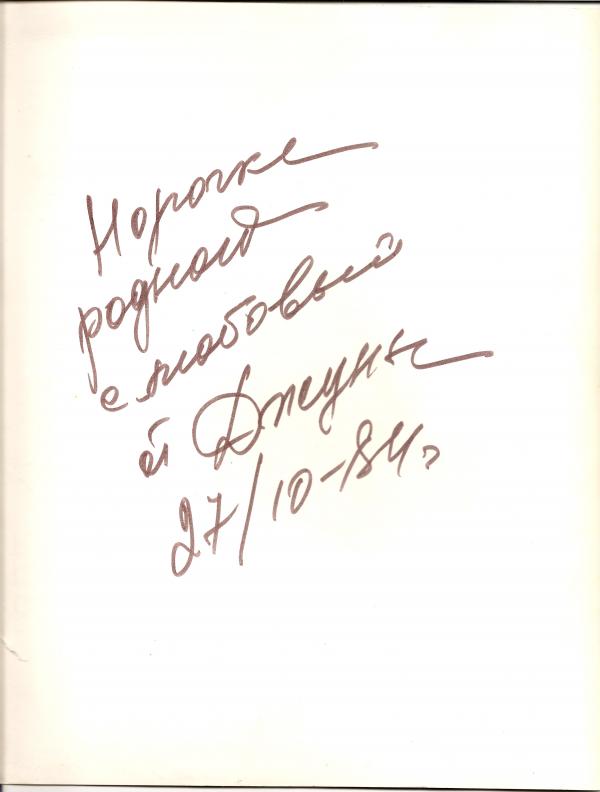 Норочке
родной
с любовью
от Джуны
27/10-84 г